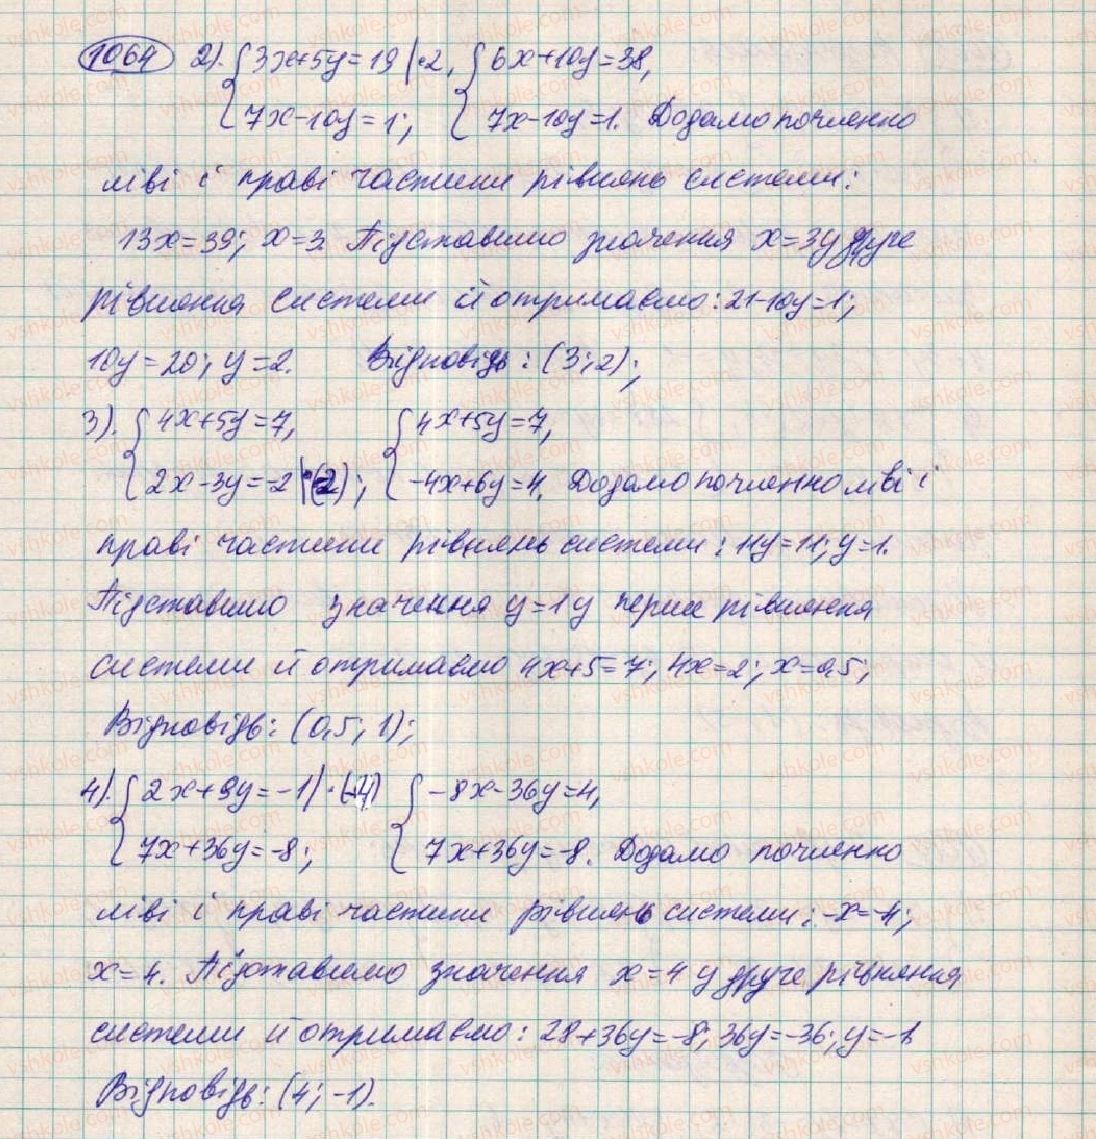 1064 2). {3x+5y=19 |·2, {6x+10y=38,
7x-10y=1; 7x-10y=1. Додамо почленно
ліві і праві частини рівнянь системи:
13x=39; x=3. Підставимо значення x=3 у друге
рівняння системи й отримаємо: 21-10y=1;
10y=20; y=2. Відповідь: (3;2);
3). {4x+5y=7, {4x+5y=7,
2x-3y=-2 |·(-2); -4x+6y=4. Додамо почленно ліві і
праві частини рівнянь системи: 11y=11; y=1.
Підставимо значення y=1 у перше рівняння
системи й отримаємо 4x+5=7; 4x=2; x=0,5;
Відповідь: (0,5; 1);
4). {2x+9y=-1 |·(-4) {-8x-36y=4,
7x+36y=-8; 7x+36y=-8. Додамо почленно
ліві і праві частини рівнянь системи: -x=-4;
x=4. Підставимо значення x=4 у друге рівняння
системи й отримаємо: 28+36y=-8; 36y=-36; y=-1
Відповідь: (4; -1).